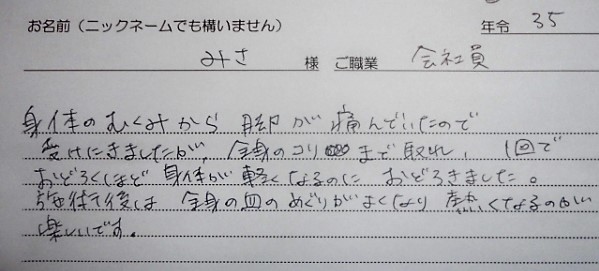 お名前(ニックネームでも構いません) 年令 35
みさ 様 ご職業 会社員
身体のむくみから 脚が 痛んでいたので
受けにきましたが、全身のコリまで取れ、1回で
おどろくほど 身体が軽くなるのに おどろきました。
施術後は 全身の血のめぐりがよくなり 熱くなるのが
楽しいです。